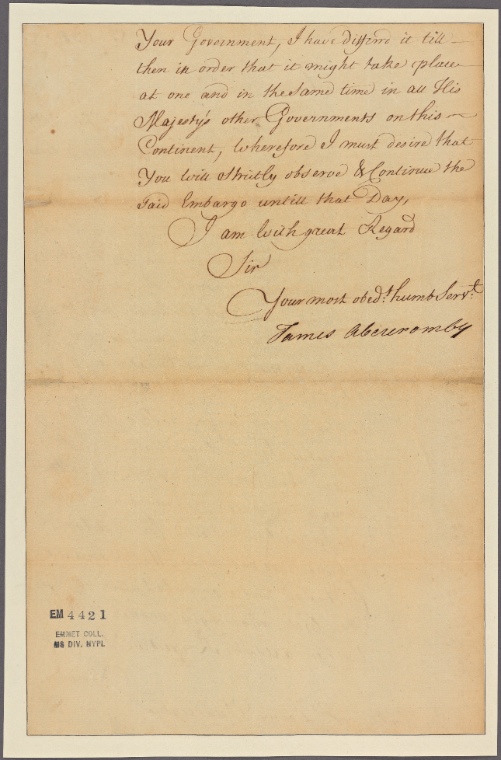 Your Government, I have differrd it till
then in order that it might take place
at one and in the same time in all His
Majesty's other Governments on this
Continent, Wherefore I must desire that
You will strictly observe & Continue the
said Embargo untill that Day,
I am with great Regard
Sir
Your most obedt. humb Servt.
James Abercromby
EM 4421
EMMET COLL.
MS DIV. NYPL